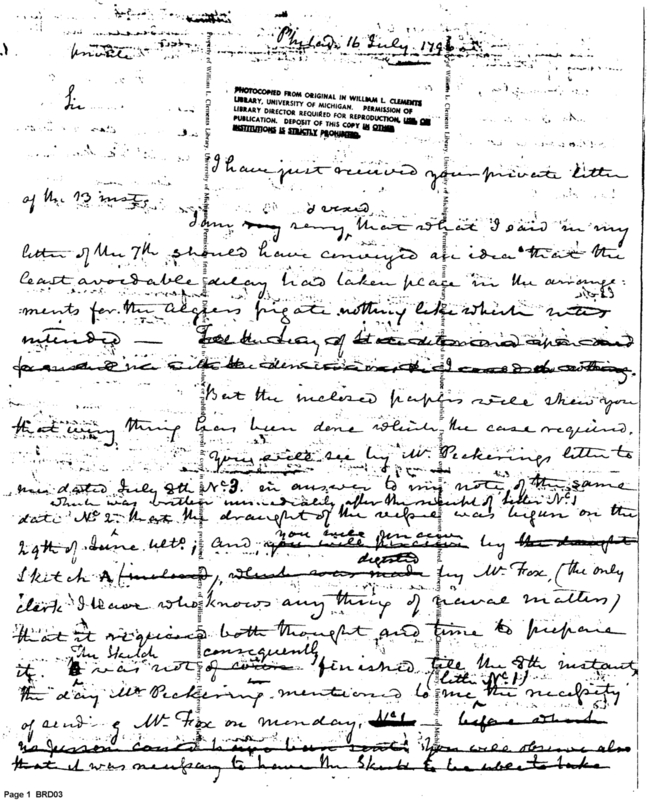 Philad. 16 July 1796
private
Sir
PHOTOCOPIED FROM ORIGINAL IN WILLIAM L. CLEMENTS
LIBRARY, UNIVERSITY OF MICHIGAN. PERMISSION OF
LIBRARY DIRECTOR REQUIRED FOR REPRODUCTION, USE OR
PUBLICATION. DEPOSIT OF THIS COPY IN OTHER
INSTITUTIONS IS STRICTLY PROHIBITED.
I have just received your private letter
of the 13 inst.
I am very sorry, that what I said in my
letter of the 7th should have conveyed an idea that the
least avoidable delay had taken place in the arrange-
ments for the Algiers frigate nothing like which was
intended —
But the inclosed papers will shew you
that every thing has been done which the case required.
You will see by Mr. Pickerings letter to
me dated July 8th No 3. in answer to my note of the same
which was written immediately after the receipt of letter No 1
date No 2. that the draught of the vessel was begun on the
29th of June ulto, and you will perceive by the draught
Sketch A (inclosed), which was made digested by Mr Fox, (the only
clerk I have who knows any thing of naval matters)
that it required both thought and time to prepare
it The Sketch was not of consequently finished till the 8th instant
the day Mr Pickering mentioned to me (letter No 1) the necessity
of send g Mr Fox on monday. No 1 - before which
no person could have been sent. You will observe also
that it was necessary to have the Sketch to be able to take
Page 1 BRD03